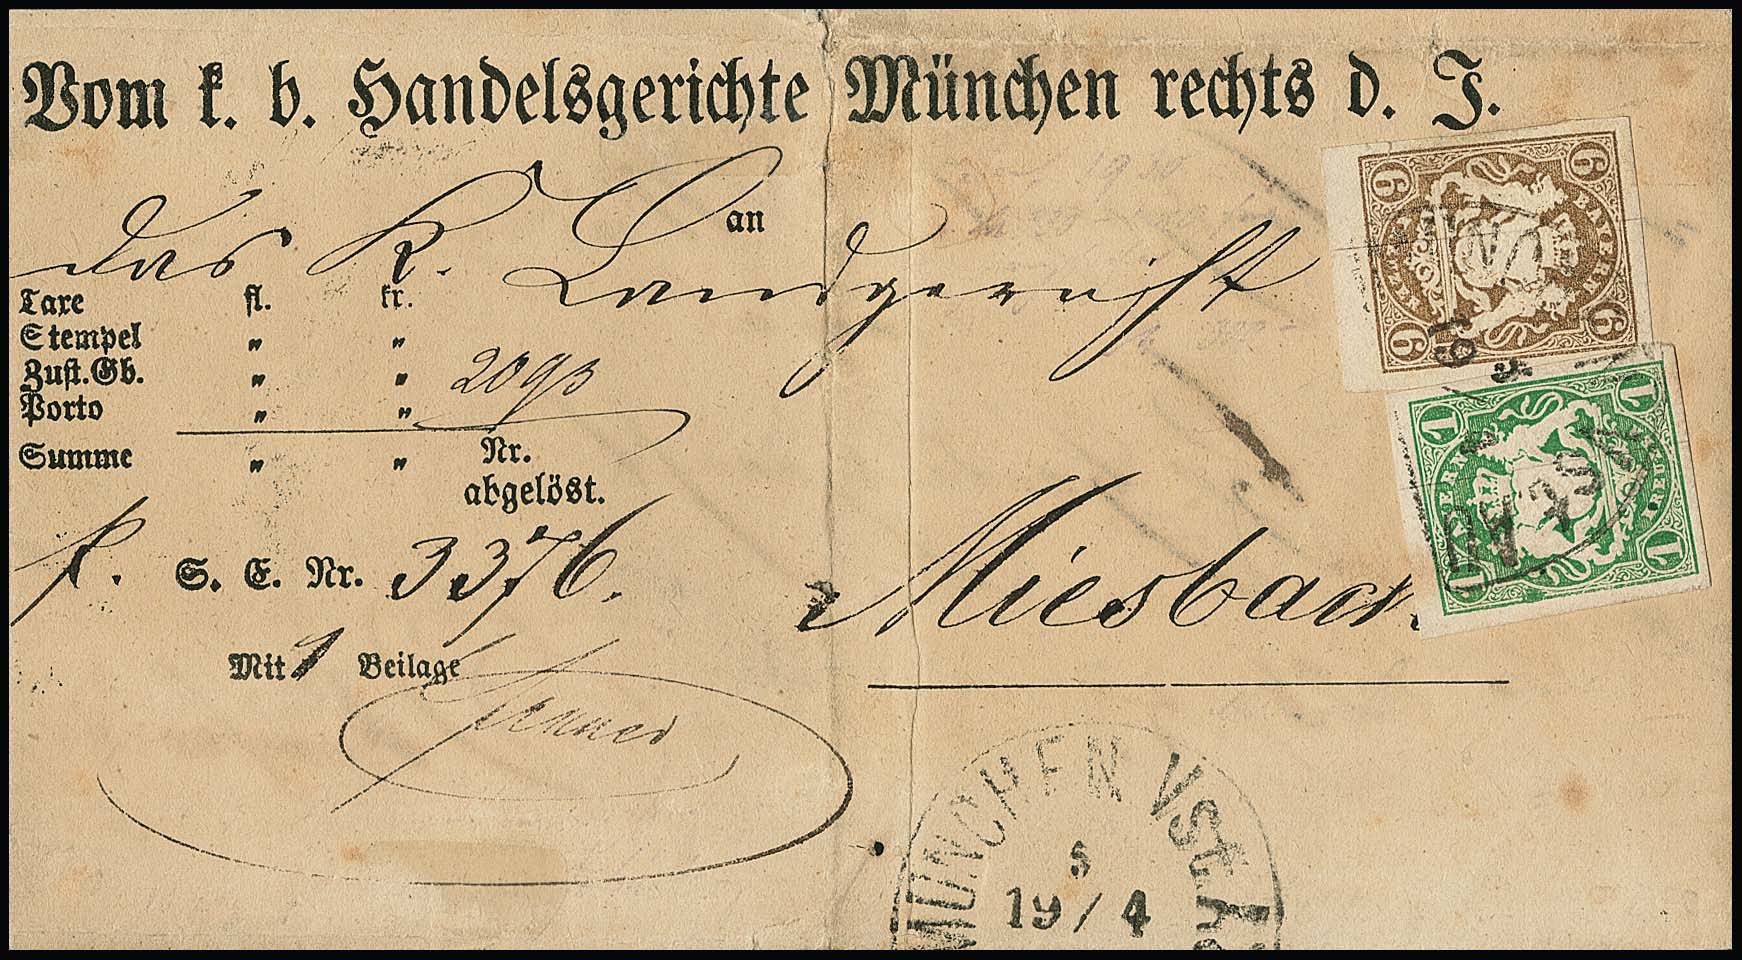 Vom k. b. Handelsgerichte München rechts d. I.
an
das K. Landgericht
Taxe fl. kr.
Stempel " "
Zust.Gb. " "
Porto " "
Summe " " Nr.
abgelöst.
S. E. Nr. 3376.
Miesbach.
Mit 1 Beilage
6 6 6 6
BAYERN
KREUZER
1 1 1 1
BAYERN
KREUZER
MÜNCHEN
19/4